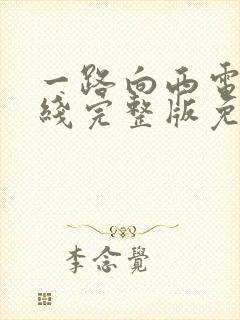 一路向西電
綫完整版免
李念覺